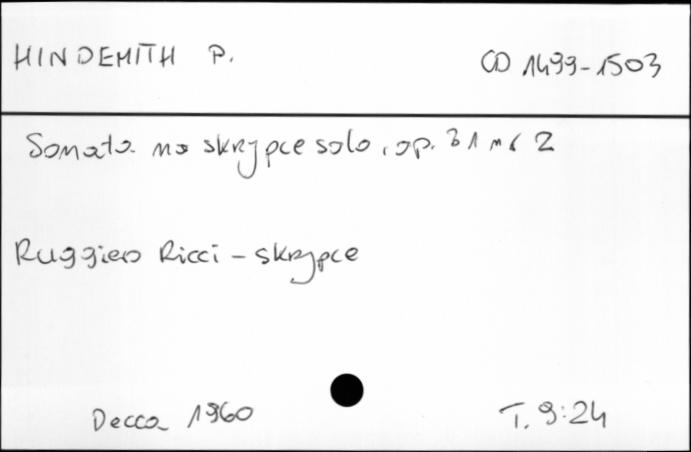 HINDEMITH P.
CD 1499-1503
Sonata na skrzypce solo, op. 31 nr 2
Ruggiero Ricci - skrzypce
Decca 1960
T. 9:24